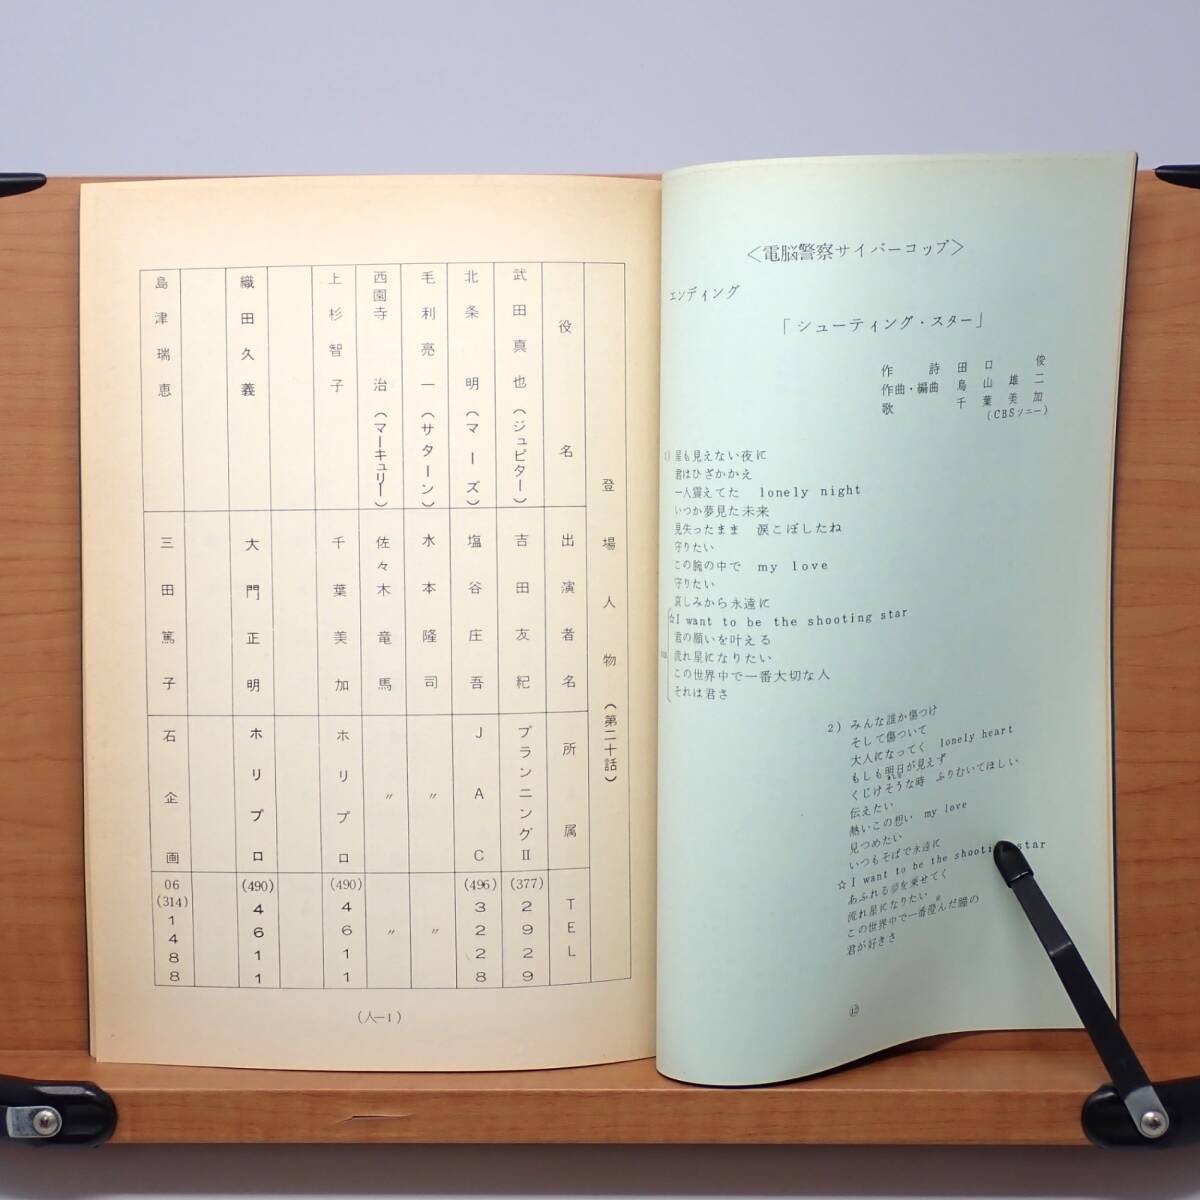 <電脳警察サイバーコップ>
エンディング
「シューティング・スター」
作詩 田口俊
作曲・編曲 鳥山雄二
歌 千葉美加
(CBSソニー)
1) 星も見えない夜に
君はひざかかえ
一人震えてた lonely night
いつか夢見た未来
見失ったまま 涙こぼしたね
守りたい
この腕の中で my love
守りたい
哀しみから永遠に
☆I want to be the shooting star
君の願いを叶える
流れ星になりたい
この世界中で一番大切な人
それは君さ
2) みんな誰か傷つけ
そして傷ついて
大人になってく lonely heart
もしも明日が見えず
くじけそうな時 ふりむいてほしい
伝えたい
熱いこの想い my love
見つめたい
いつもそばで永遠に
☆I want to be the shooting star
あふれる夢を乗せてく
流れ星になりたい
この世界中で一番澄んだ瞳の
君が好きさ
登場人物(第二十話)
役名 出演者名 所属 TEL
武田真也(ジュピター) 吉田友紀 プランニングII (377)2929
北条明(マーズ) 塩谷庄吾 JAC (496)3228
毛利亮一(サターン) 水本隆司 〃 〃
西園寺治(マーキュリー) 佐々木竜馬 〃 〃
上杉智子 千葉美加 ホリプロ (490)4611
織田久義 大門正明 ホリプロ (490)4611
島津瑞恵 三田篤子 石企画 06(314)1488
(人-1)